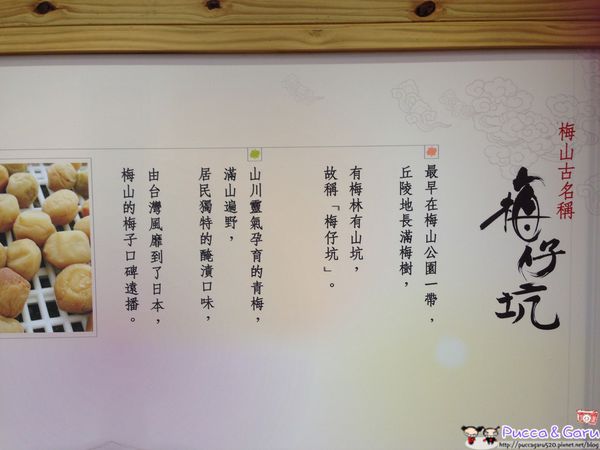 梅山古名稱
梅仔坑
最早在梅山公園一帶，
丘陵地長滿梅樹，
有梅林有山坑，
故稱「梅仔坑」。
山川靈氣孕育的青梅，
滿山遍野，
居民獨特的醃漬口味，
由台灣風靡到了日本，
梅山的梅子口碑遠播。
Pucca & Garu
http://puccagaru520.pixnet.net/blog